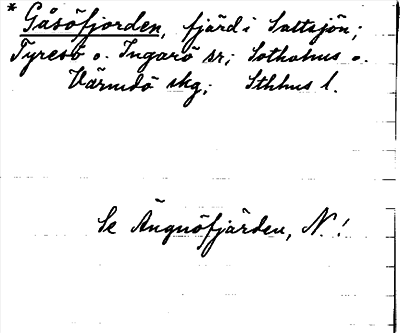 * Gåsöfjorden, fjärd i Saltsjön;
Tyresö o. Ingarö sr; Sotholms o.
Värmdö skg; Sthlms l.
Se Ängnöfjärden, N.!